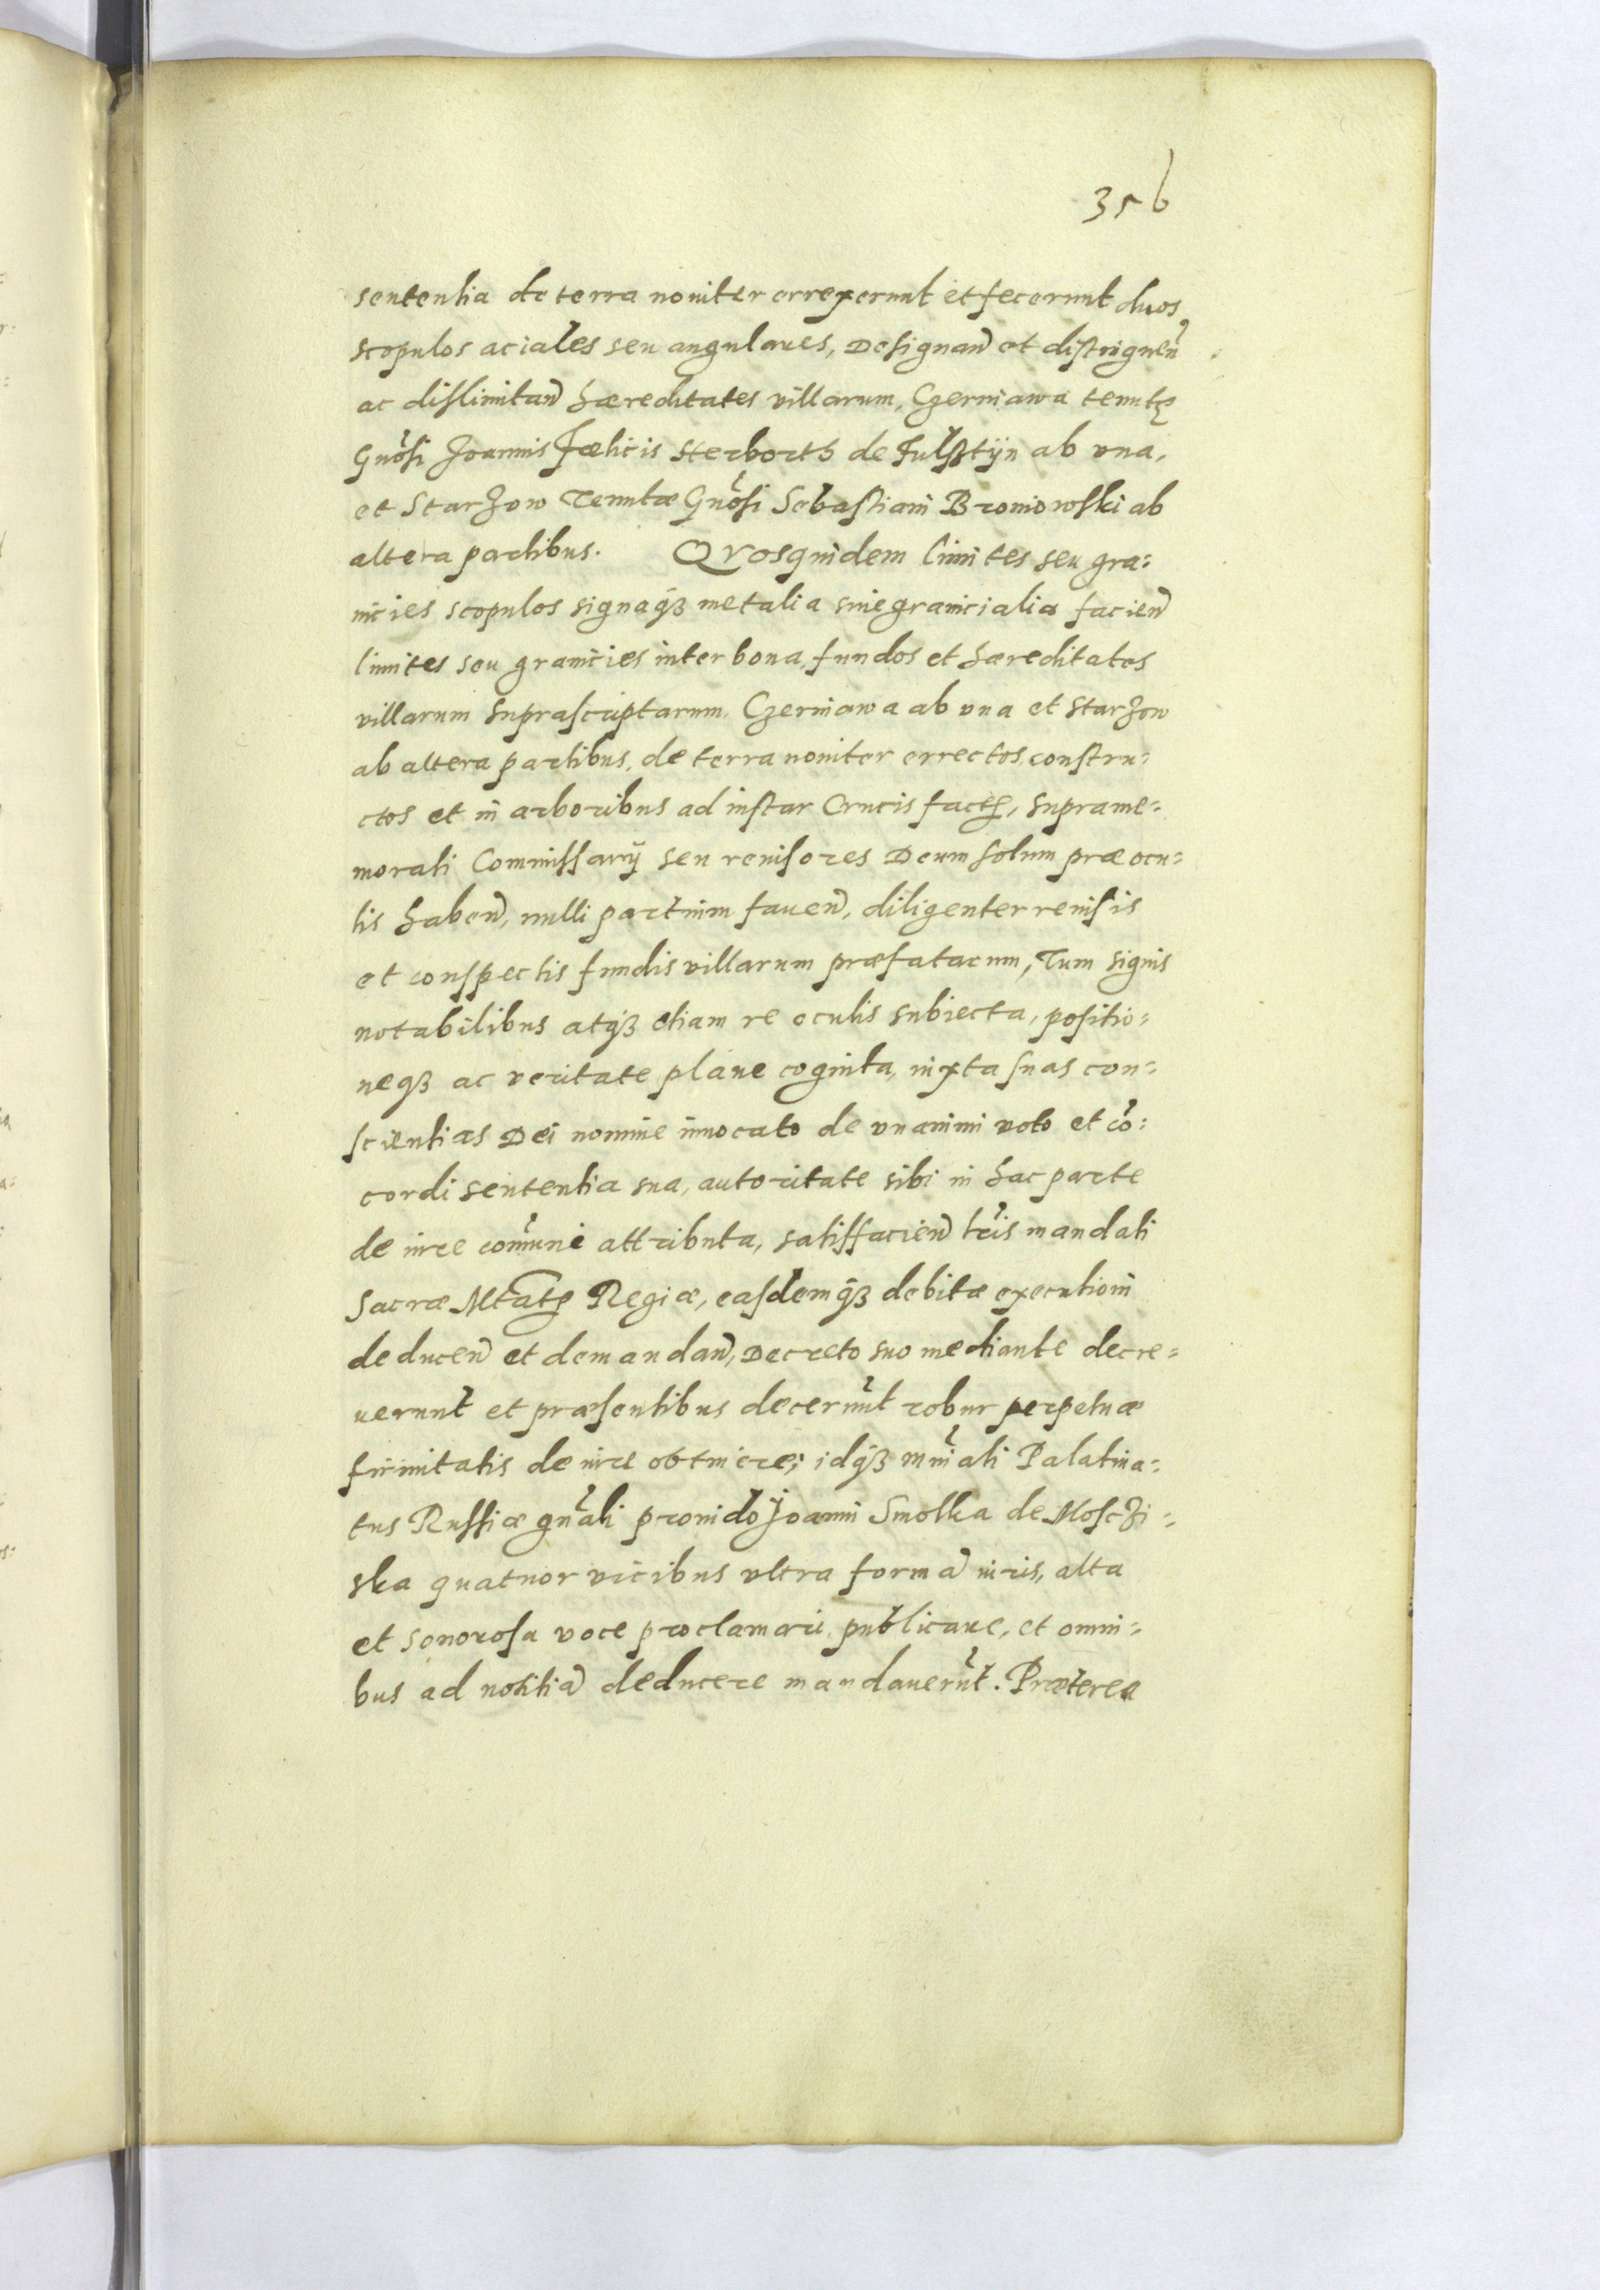 356
sententia de terra noviter errexerunt et fecerunt duos
scopulos aciales seu angulares, Designan̄ et distinguen̄
ac dislimitan̄ hæreditates villarum, Czerniawa tenutę
Gnōsi Joannis Fælicis Herborth de Fulsztÿn ab vna,
et Starzow Tenutæ Gnōsi Sebastiani Broniowski ab
altera partibus. QVosquidem limites seu gra=
nicies scopulos signaqȝ metalia siue granicialia facien̄
limites seu granicies inter bona, fundos et hæreditates
villarum suprascriptarum, Czerniawa ab vna et Starzow
ab altera partibus, de terra noviter errectos, constru=
ctos et in arboribus ad instar Crucis factę, suprame=
morati Commissarÿ seu reuisores Deum solum præ ocu=
lis haben̄, nulli partium fauen̄, diligenter reuisis
et conspectis fundis villarum præfatarum, Tum signis
notabilibus atqȝ etiam re oculis subiecta, positio=
neqȝ ac veritate plane cognita, iuxta suas con=
scientias Dei nomine inuocato de vnanimi voto et cō=
cordi sententia sua, autoritate sibi in hac parte
de iure com̄uni attributa, satisfacien̄ lr̄is mandati
Sacræ Mtatę Regiæ, easdemqȝ debitæ executioni
deducen̄ et demandan̄, Decreto suo mediante decre=
uerunt et præsentibus decernūt robur perpetuæ
firmitatis de iure obtinere; idqȝ min̄ali Palatina=
tus Russiæ gn̄ali prouido Joanni Smolka de Mosczi=
ska quatuor vicibus vltra formā iuris, alta
et sonorosa voce proclamari, publicare, et omni=
bus ad notitiā deducere mandauerūt. Præterea